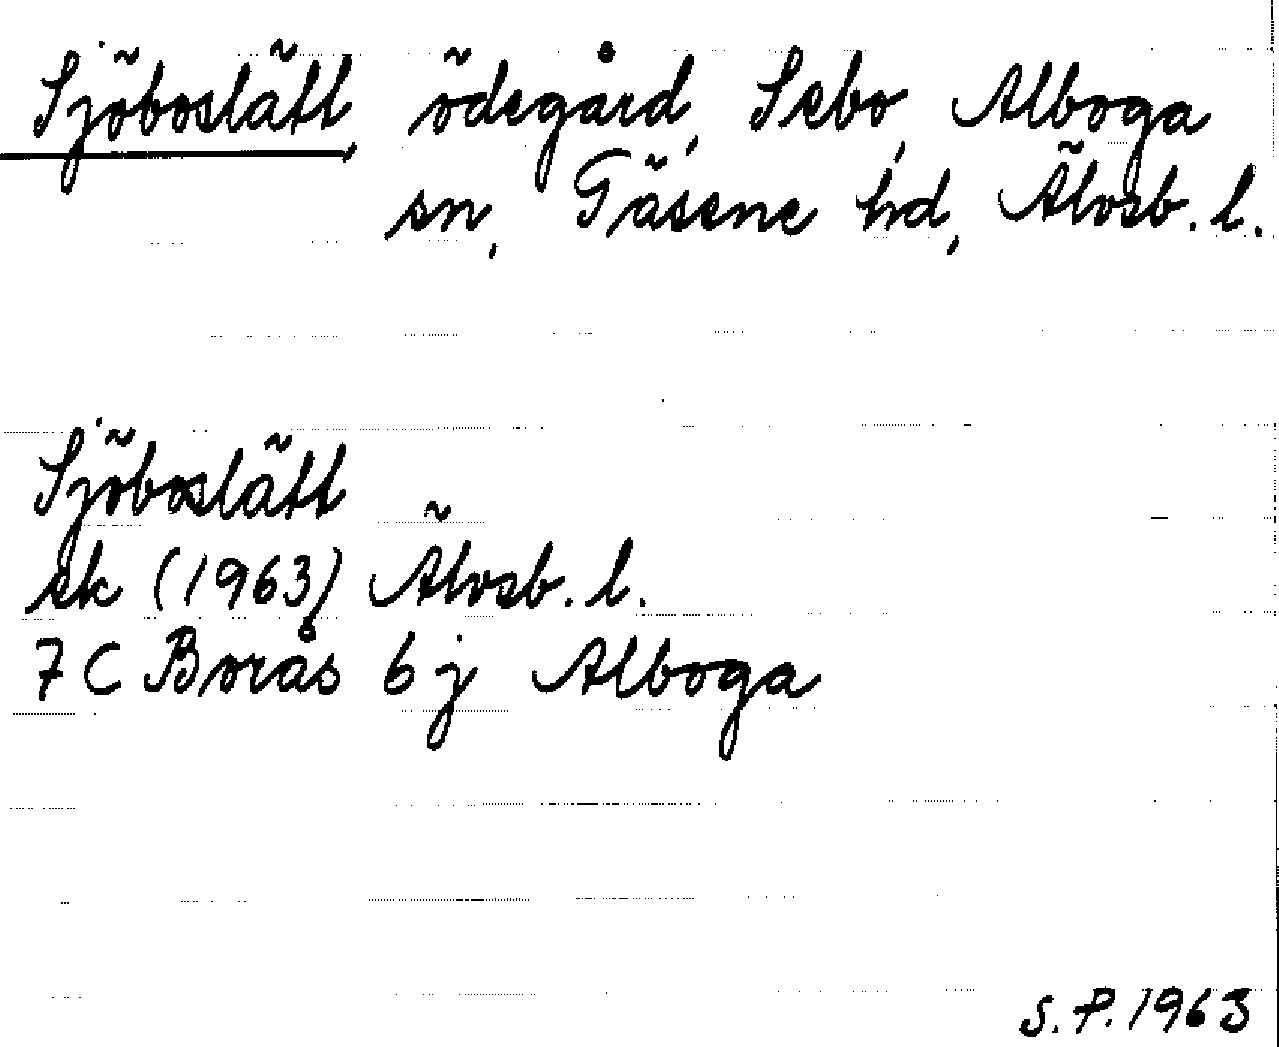 Sjöboslätt, ödegård, Sebo, Alboga
sn, Gäsene hd, Älvsb. l.
Sjöboslätt
ek (1963) Älvsb. l.
7 C Borås 6 j Alboga
S.P. 1963